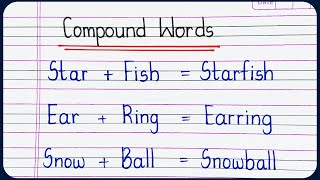 Compound Words
Star + Fish = Starfish
Ear + Ring = Earring
Snow + Ball = Snowball